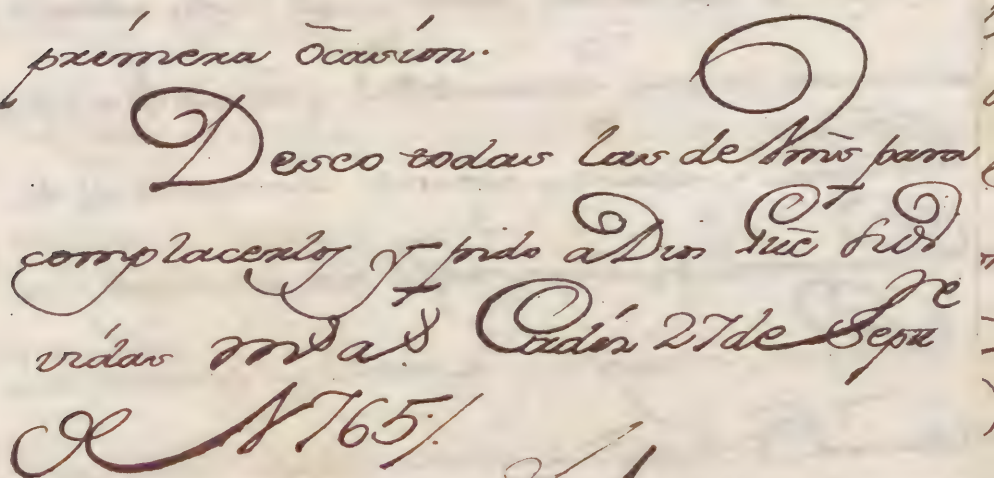 primera ocasion.
Deseo todas las de Vms para
complacerlos y pido a Dios gũe sus
vidas ms as Cadiz 27 de Sepre
de 1765./